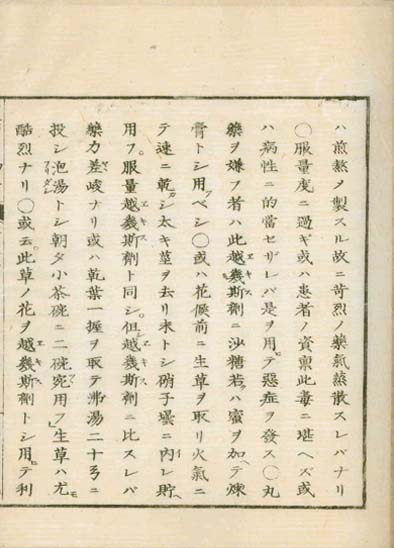 ハ煎熬メ製スル故ニ苛烈ノ藥氣蒸散スレバナリ
〇服量度ニ過ギ或ハ患者ノ資稟此毒ニ堪ヘズ或
ハ病性ニ的當セザレバ是ヲ用テ惡症ヲ發ス〇丸
藥ヲ嫌フ者ハ此越幾斯劑ニ沙糖若ハ蜜ヲ加テ煉
膏トシ用フベシ〇或ハ花候前ニ生草ヲ取リ火氣ニ
テ速ニ乾シ太キ莖ヲ去リ末トシ硝子壜ニ內レ貯
用フ。服量越幾斯劑ト同シ。但越幾斯劑ニ比スレバ
藥力差峻ナリ或ハ乾葉一握ヲ取テ沸湯二十弓ニ
投シ泡湯トシ朝夕小茶碗ニ二碗究用フ。生草ハ尤
酷烈ナリ〇或云。此草ノ花ヲ越幾斯劑トシ用テ利